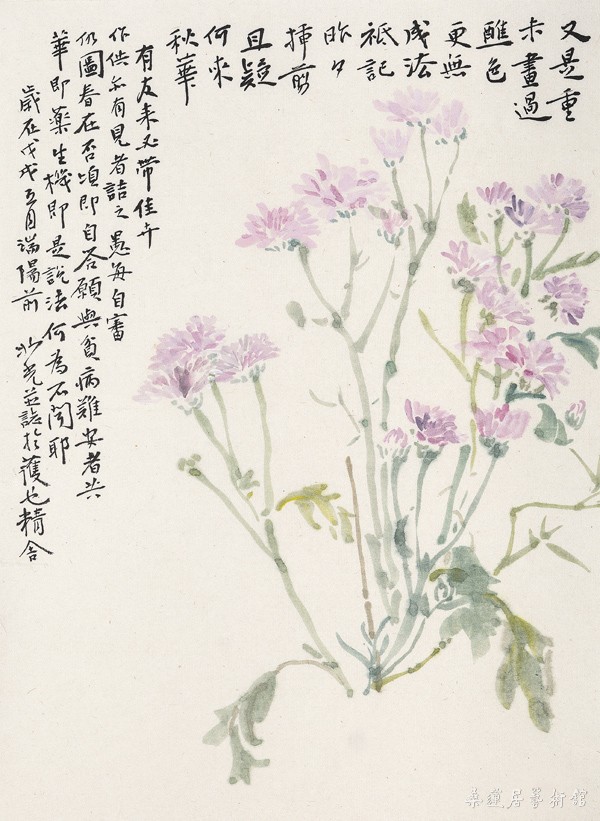 又是重
未畫過
醮色
更無
成法
祇記
昨夕
插前
且疑
何來
秋華
有友来必帶佳卉
作供亦有見者詰之愚每自審
仍圖春在否頃即自答願與貧病難安者共
華即藥生機即是說法何為不聞耶
歲在戊戌五月端陽前 沙光並誌於護七精舍
桑蓮居藝術館